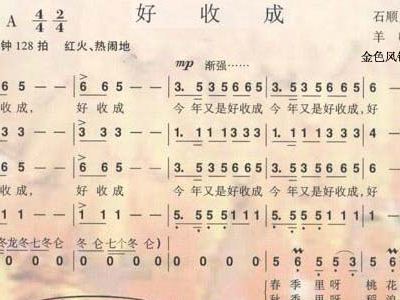 好 收 成
A 4/4 2/4
石顺
钟 128 拍 红火、热闹地
羊
金色风
mp 渐强……
6 5 | 6 6 5 — — | 3. 5 3 5 6 5 6 5 | 3. 5
收成， 好 收 成 今 年又是好收成，好 今 年
3 3 | 3 3 3 — — | 1. 1 1 1 3 5 3 3 | 1. 1
6 5 | 6 6 5 — — | 3. 5 3 5 6 5 6 5 | 3. 5
收成， 好 收 成 今 年又是好收成，好 今 年
1 1 | 1 1 1 — — | 5. 5 5 5 1 1 1 1 | 5. 5
冬龙冬七冬仑 冬 仑七个冬 仑）
0 0 | 0 0 0 0 | 0 0 0 0 | 5 6 5 5 3 | 5 6
春 季 里 呀 桃 花
秋 季 里 呀 稻